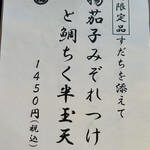 限定品 すだちを添えて
揚茄子みぞれつけ
と鯛ちく半玉天
1450円(税込)